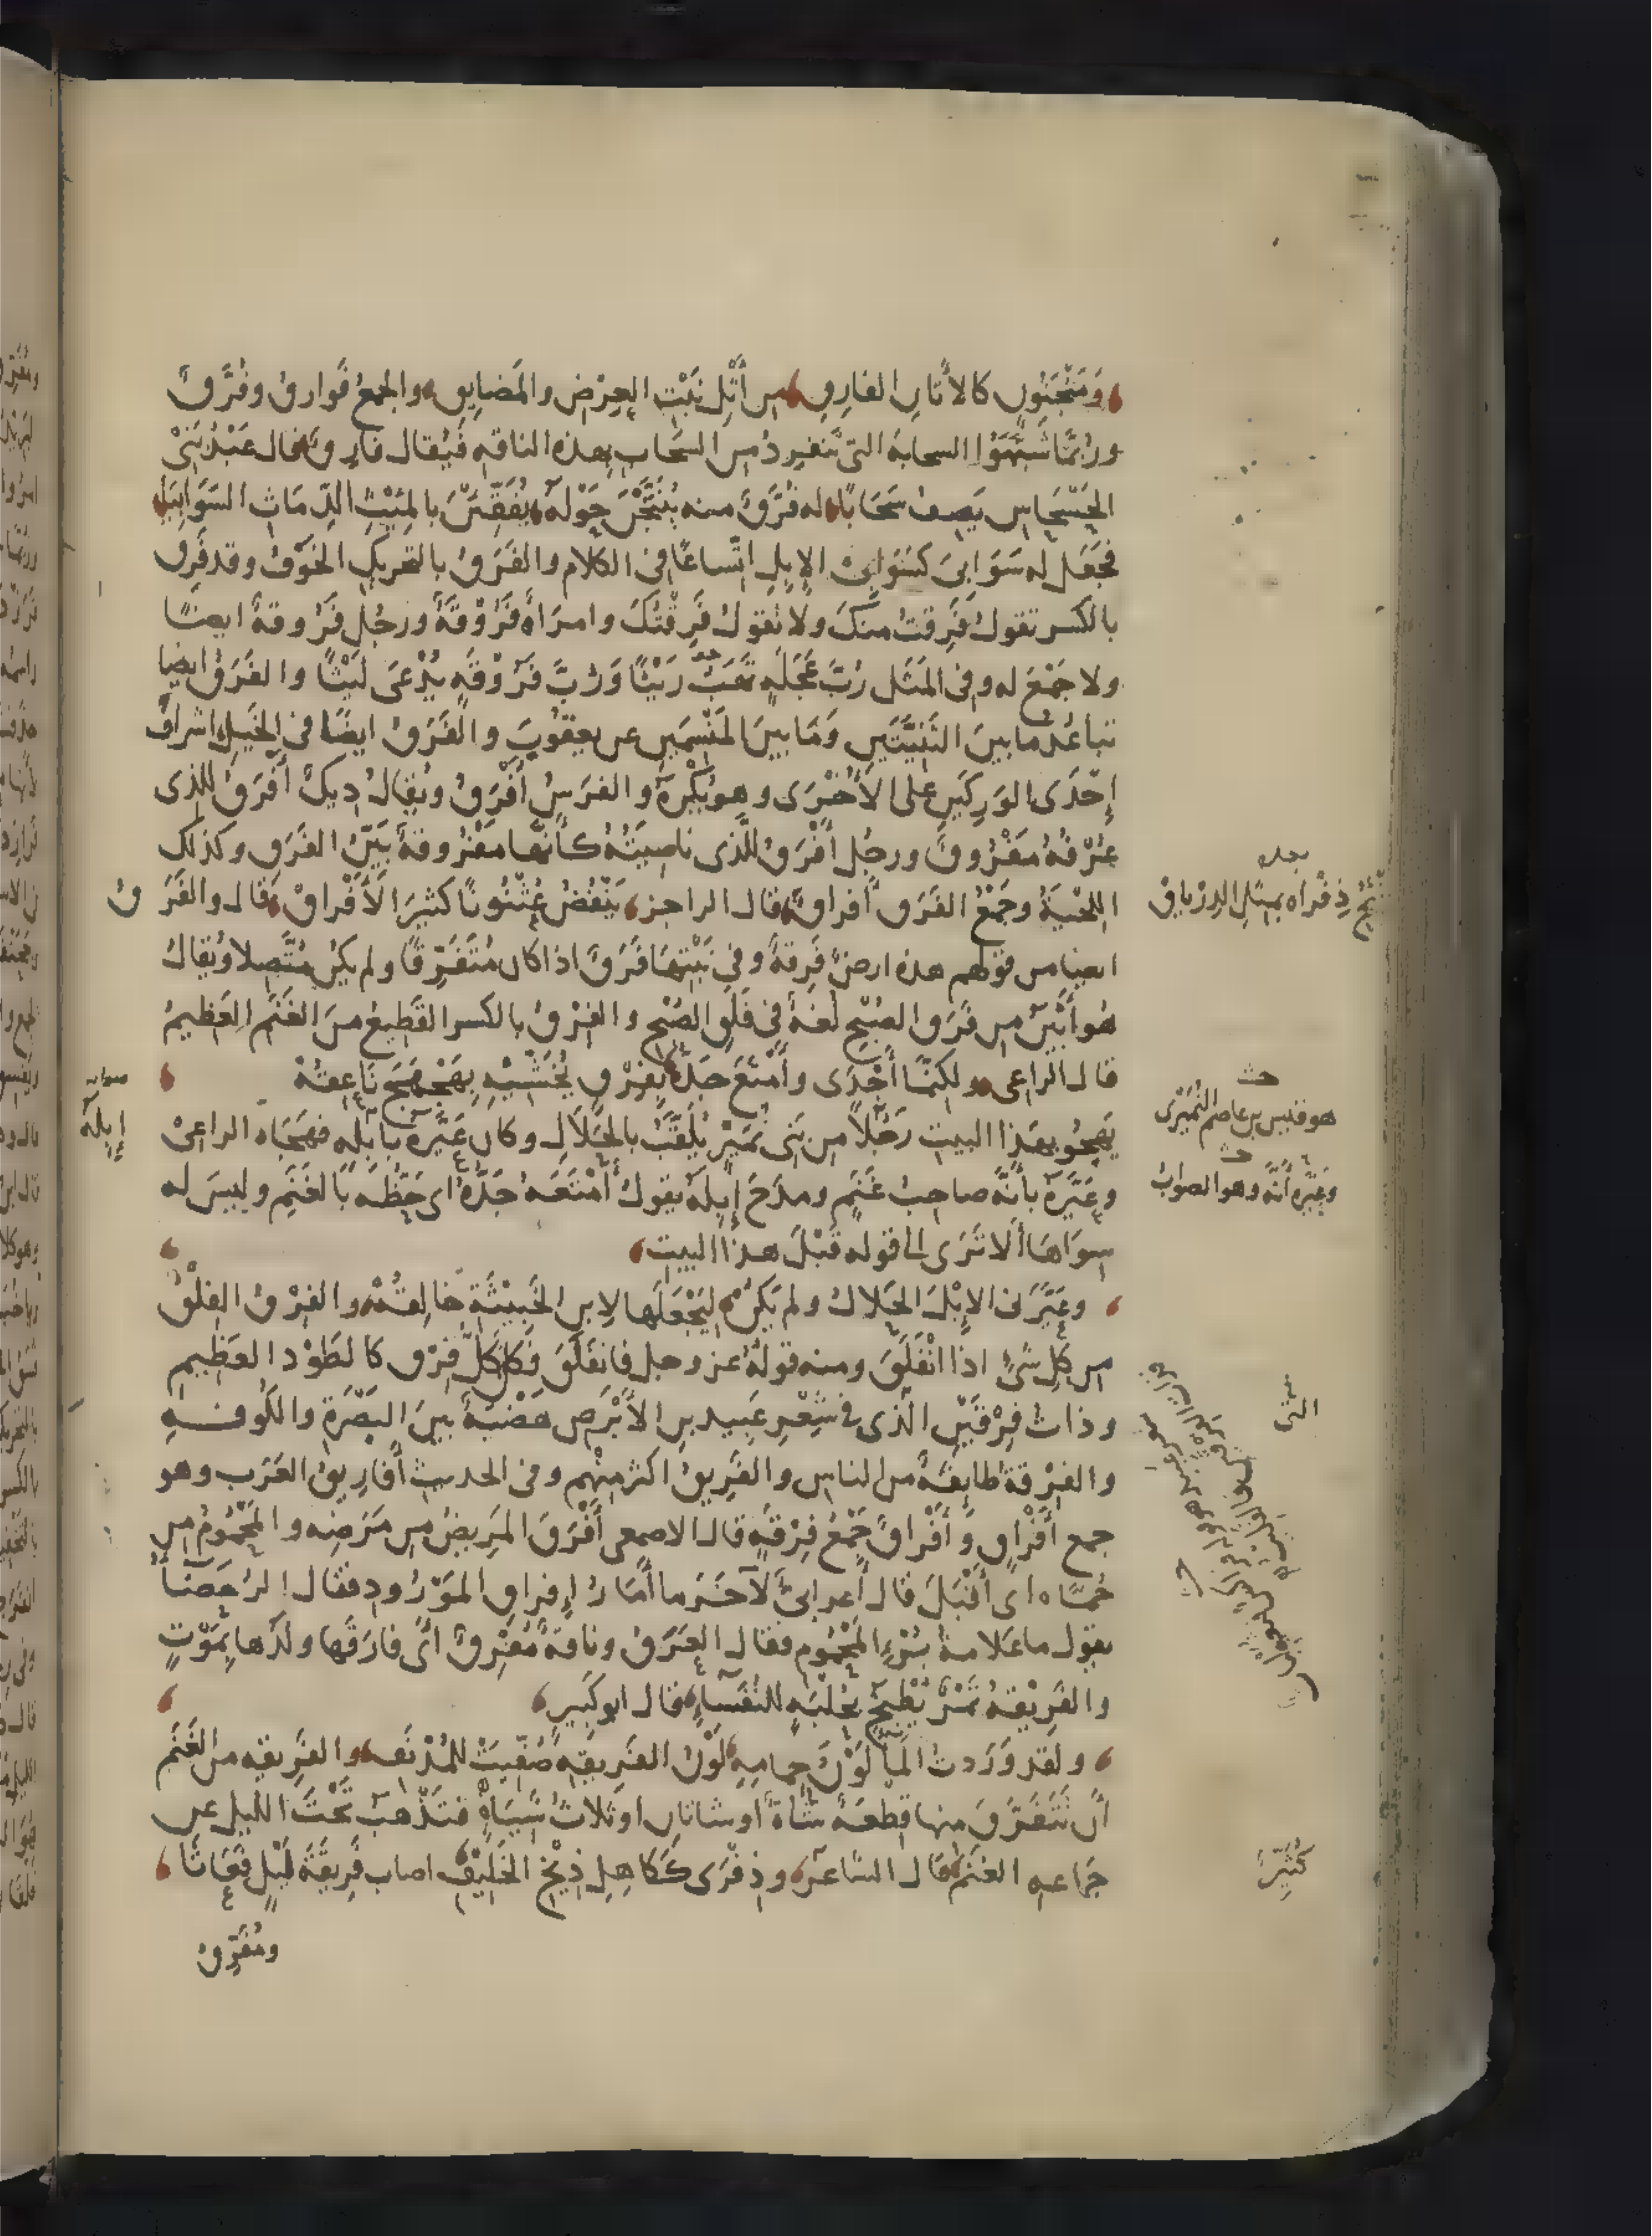 وَمَنْجَنُونٍ كالأتانِ الفارِقِ من أَثْلِ نَبْتِ العِرْضِ والمَضايِقِ والجمعُ فَوارقُ وفُرَّقٌ
ورُبَّمَا شَبَّهَوُا السحابة التى تنفردُ من السَّحابِ بهذه الناقهِ فيُقال فارِقٌ قال عَبْدُ بَنى
الحَسْحَاسِ يَصِفُ سَحَابًا له فُرَّقٌ منه يُنَتَّجْنَ حَوْلَهُ يُفَقِّئْنَ بالمِيْثِ الدِّمَاثِ السَوَابِيَا
فجَعَل له سَوَابِىَ كسَوَابِىِ الإِبِلِ اتِّساعًا فى الكلام والفَرَقُ بالتحريكِ الخَوْفُ وقد فَرِقَ
بالكسر تقولُ فَرِقتُ منكَ ولا تقولُ فَرِقْتُكَ وامرَاةٌ فَرُوْقَةٌ ورجُل فَرُوقةٌ ايضًا
ولا جَمْعَ له وفى المَثَل رُبَّ عَجَلَهٍ تَهَبُ رَيْثًا وَرُبَّ فَرُوْقَهٍ يُدْعَى لَيْثًا والفَرَقُ ايضا
تباعُدُ ما بينَ الثَنِيَّتَيْنِ وَمَا بينَ المَنْسِمَينِ عن يعقوبَ والفَرَقُ ايضًا فى الخَيلِ اشرافُ
إحْدَى الوَرِكَينِ على الأُخْرَى وهو يُكْرَهُ والفرَسُ أَفْرَقُ ويُقالُ دِيكٌ أَفْرَقُ للذى
عُرْفُهُ مَفْرُوقٌ ورجُل أَفْرَقُ للَّذى ناصِيَتُهُ كأنَّها مَفْرُوقةٌ بَيِّنُ الفَرَقِ وكذلك
اللِّحْيَةُ وجَمْعُ الفَرَقِ أفراقٌ قال الراجز يَنْفُضُ عُثْنُونًا كثيرَ الأَفْراقْ قال والفَرَقُ
ايضا من قولهم هذه ارضٌ فَرِقةٌ وفى نَبْتِهَا فَرَقٌ اذا كان مُتَفَرِّقًا ولم يكن مُتَّصِلا ويُقالُ
هُو أَبْيَنُ من فَرَقِ الصُبْحِ لُغةٌ فى فَلَقِ الصُبْحِ والفِرْقُ بالكسر القَطِيعُ منَ الغَنَمِ العَظِيمُ
قال الراعى ولكِنَّما أَجْدَى وأَمْتَعَ جَدُّهُ بِفِرْقٍ يُخَشِّيْهِ بِهَجْهَجَ نَاعِقُهْ
يَهجُو بهَذا البيتِ رَجُلًا من بَنى نُمَيْرٍ يُلَقَّبُ بالحَلَالِ وكان عَيَّرَهُ بابِلِهِ فهَجَاه الراعِىْ
وعَيَّرَهُ بأنَّهُ صاحِبُ غَنَمٍ ومدَحَ إِبِلَهُ يقولُ أَمْتَعَهُ جَدُّهُ اى حَظُّهُ بالغَنَمِ وليسَ له
سِوَاهَا ألا تَرَى الى قوله قَبْلَ هذا البيت
وعَيَّرَنى الإِبْلَ الحَلَالُ ولم يَكُنْ ليَجْعَلَها لابنِ الخَبِيثَةِ خَالِقُهْ والفِرْقُ الفِلْقُ
من كلِّ شَىْءٍ اذا انْفَلَقَ ومنه قولُهُ عز وجل فانفَلَقَ فَكانَ كلُّ فِرْقٍ كالطَوْدِ العظيم
وذاتُ فِرْقَيْنِ الَّذى فى شِعْرِ عَبِيد بنِ الأَبْرَصِ هَضْبَةٌ بينَ البَصْرَةِ والكُوفهِ
والفِرْقةُ طائِفَةٌ من الناس والفَرِيقُ اكثر منهم وفى الحديث أَفَارِيقُ العَرَب وهو
جمع أَفْراقٍ وَأَفْرَاقٌ جَمْعُ فِرْقَهٍ قال الاصمعى أَفْرَقَ المَرِيضُ من مَرَضِه والمَحْمُومُ من
حُمَّاه اى أَقْبَلَ قال أعرابىٌّ لآخَرَ ما أمَارُ إِفراقِ المَوْرُودِ فقال الرُحَضَاءُ
يقول ما عَلامةُ بُرْءِ المَحْمُوم فقال العَرَقُ وناقةٌ مُفْرِقٌ أى فارَقَها ولَدُها بِمَوْتٍ
والفَرِيْقةُ تَمْرٌ يُطْبَخُ بحُلْبَهٍ للنُفَسَاءِ قال ابو كَبِيرٍ
ولقد وَرَدتُ المَاءَ لَوْنُ جِمامِهِ لَوْنُ الفَرِيقَهِ صُفِّيَتْ للمُدْنَفِ والفَرِيقه من الغَنَم
أن تَتَفَرَّقَ منها قِطعَةٌ شاةٌ أو شاتانِ او ثلاثُ شِيَاهٍ فتَذْهبَ تَحْتَ اللَّيل عن
جَمَاعهِ الغنَم قال الشاعر وذِفْرَى كَكاهِلِ ذِيْخِ الخَلِيْفِ اصاب فَرِيقَةَ لَيْلٍ فَعَاثَا
ومُفَرِّقُ
بعده
ذِفْراه بمِثلِ الدِرْياقْ
هو قيس بن عاصم النُمَيْرى
وعَيَّره أنَّه وهو الصوابُ
صوابه
إِبِلَهُ
التى
كُثَيِّرٌ